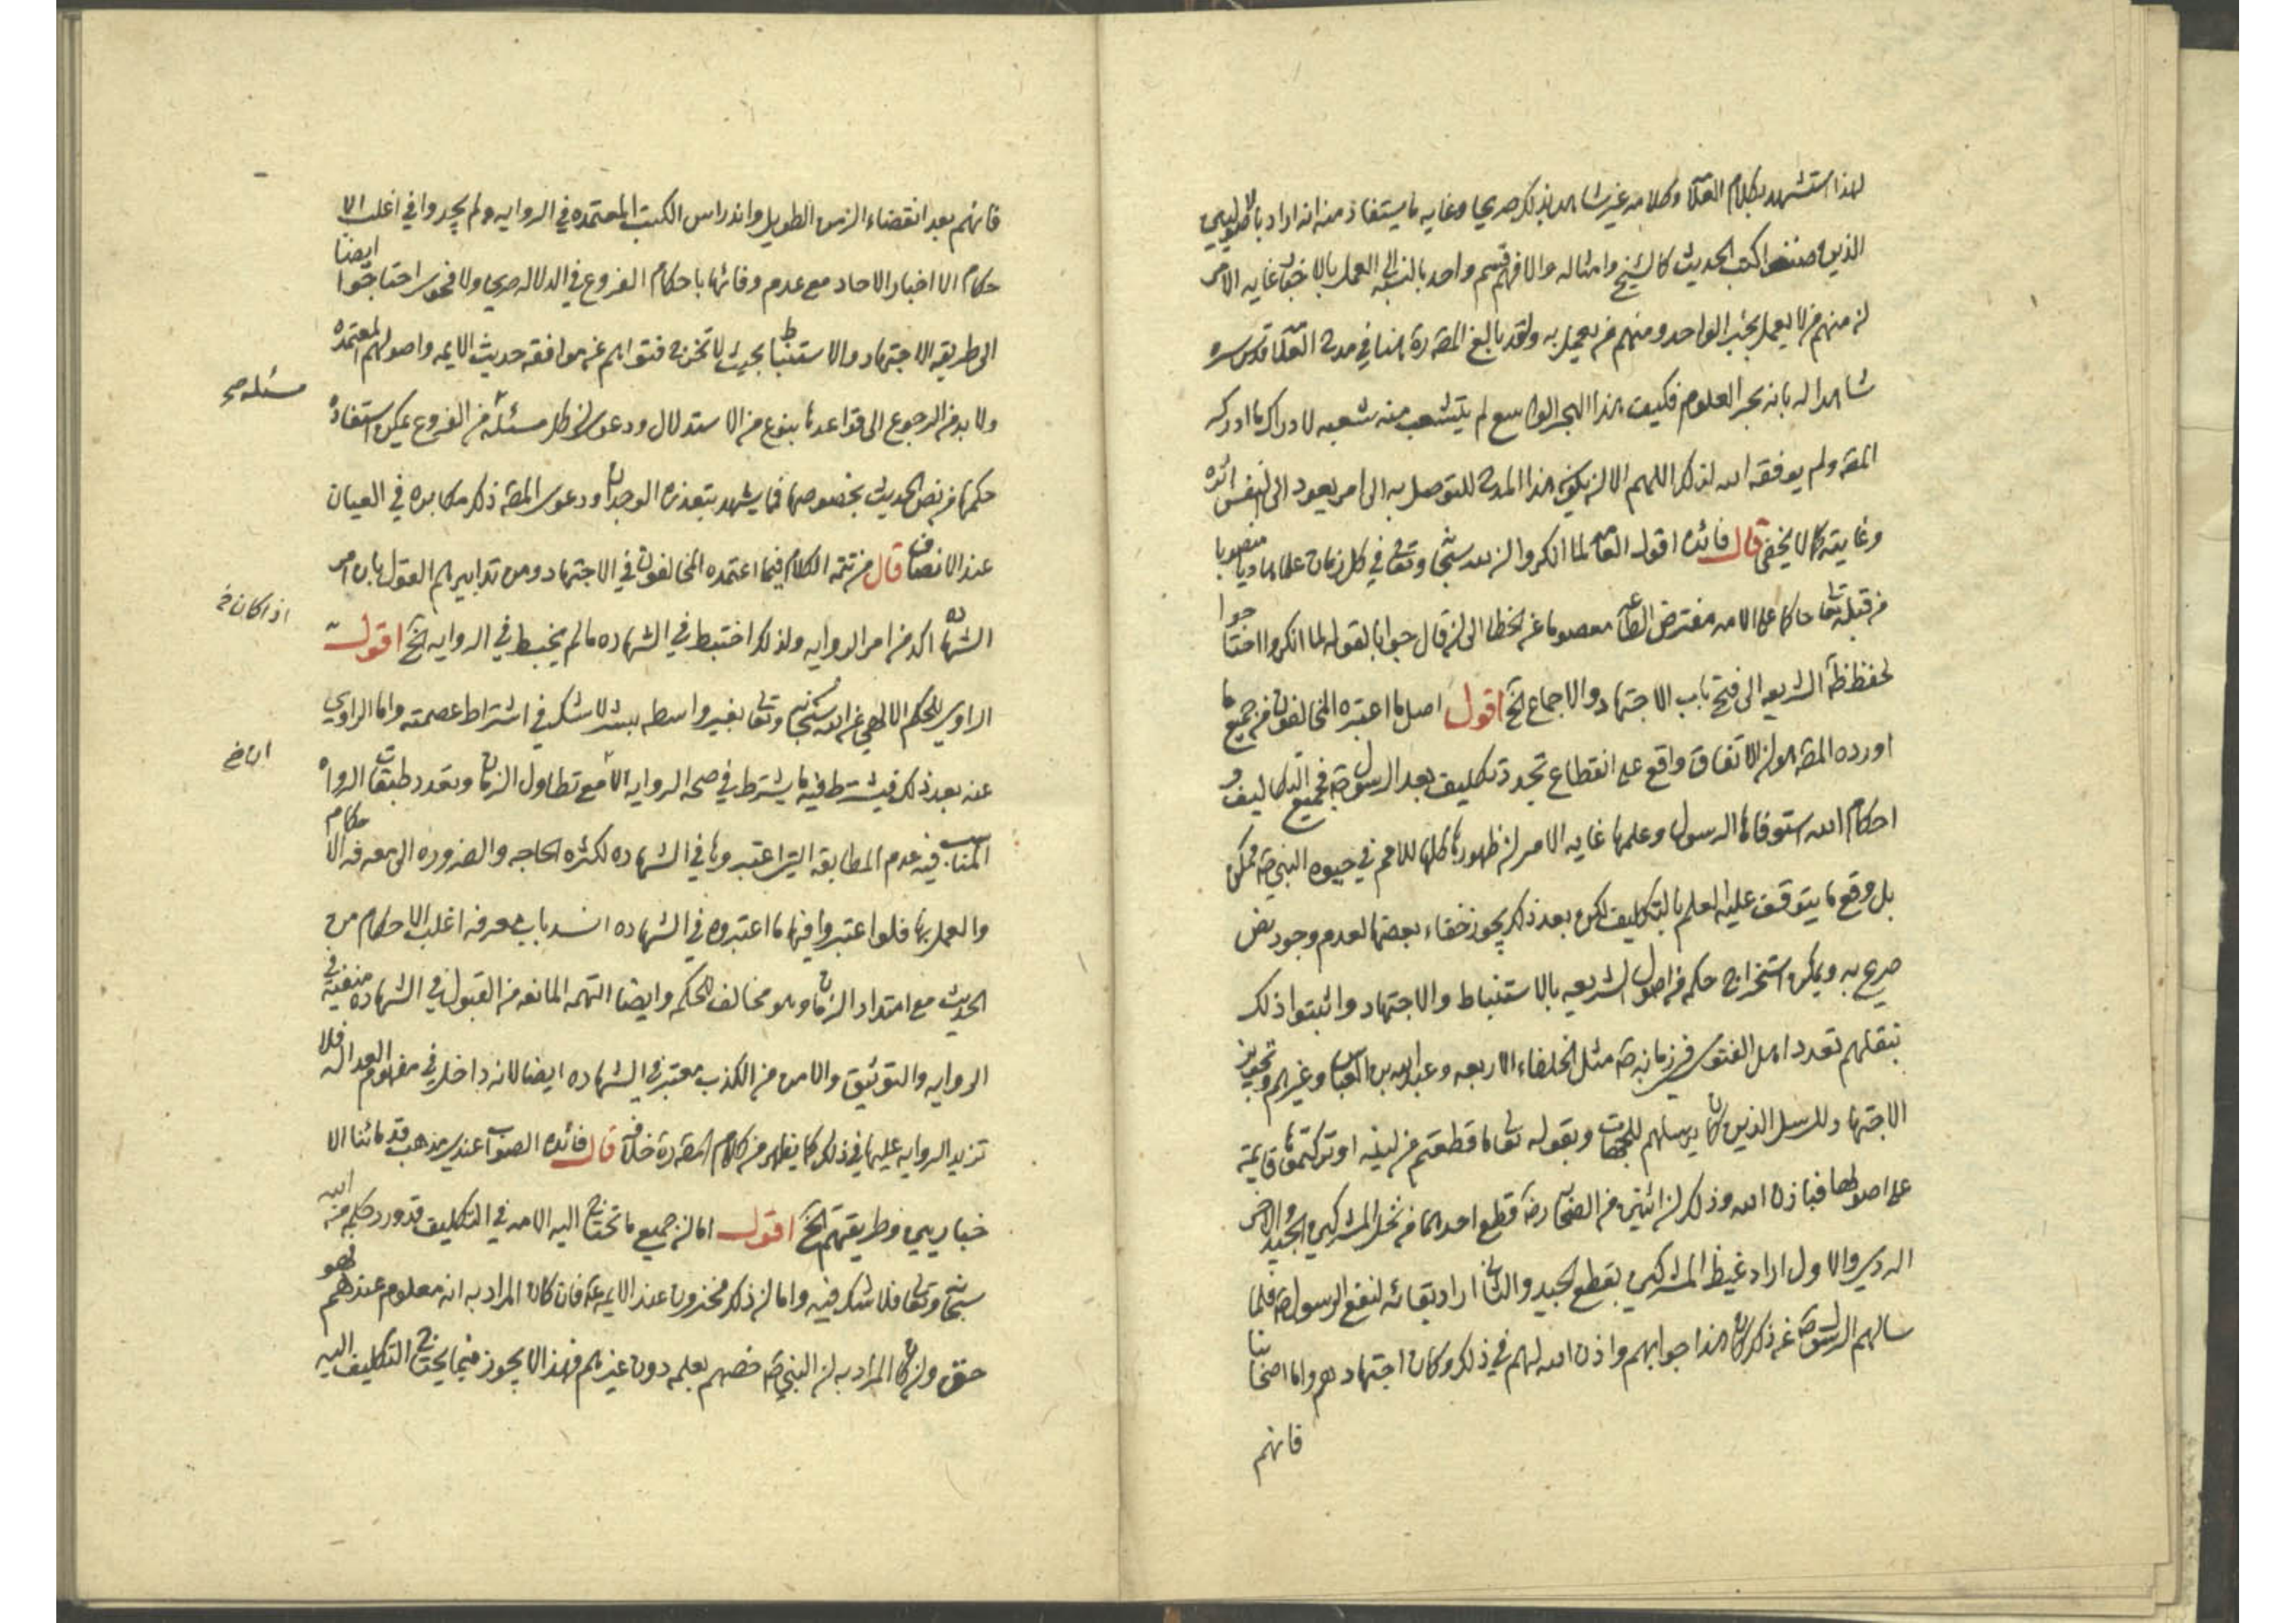 لهذا استشهد بكلام العلامة وكلامه غير شاهد بذلك صريحا وغايه ما يستفاد منه انه اراد بالاصوليين
الذين صنفوا كتب الحديث كالشيخ وامثاله والا فهم قسم واحد بالنسبه الى العمل بالاخبار غايه الامر
ان منهم من لا يعمل بخبر الواحد ومنهم من يعمل به ولقد بالغ المصه ره هنا في مدح العلامه قدس سره
شاهدا له بانه بحر العلوم فكيف هذا البحر الواسع لم يتشعب منه شعبه لادراك ما ادركه
المصه ولم يوفقه الله لذلك اللهم الا ان يكون هذا المدح للتوصل به الى امر يعود الى نفس فائده
وغايته كما لا يخفى قال فائده اقول العامه لما انكروا ان لله سبحانه وتعالى في كل زمان علما هاديا منصوبا
من قبله تعالى حاكما على الامه مفترض الطاعه معصوما عن الخطا الى ان قال جوابا لقوله لما انكروا احتاجوا
لحفظ ظاهر الشريعه الى فتح باب الاجتهاد والاجماع الخ اقول اصل ما اعتبره المخالفون من جميع ما
اورده المصه هو ان الاتفاق واقع على انقطاع تجدد تكليف بعد الرسول صه فجميع التكاليف و
احكام الله استوفاها الرسول وعلمها غايه الامر ان ظهورها كلها للامم في حيوه النبي صه ممكن
بل وقع ما يتوقف عليه العلم بالتكليف لكن بعد ذلك يجوز خفاء بعضها لعدم وجود نص
صريح به ويمكن استخراج حكمه من اصول الشريعه بالاستنباط والاجتهاد واثبتوا ذلك
بنقلهم تعدد اهل الفتوى في زمانه صه مثل الخلفاء الاربعه وعبد الله بن العباس وغيرهم وتجويز
الاجتهاد للرسل الذين كان يرسلهم للجهات وبقوله تعالى ما قطعتم من لينه او تركتموها قايمة
على اصولها فباذن الله وذلك ان اثنين من الصحابه رضه قطع احدهما من نخل المشركين الجيد والاخر
الردي والاول اراد غيظ المشركين بقطع الجيد والثاني اراد بقائه لنفع الرسول صه فلما
سالهم الرسول صه عن ذلك كان هذا جوابهم واذن الله لهم في ذلك وكان اجتهادهم واما اصحابنا
فانهم
فانهم بعد انقضاء الزمن الطويل واندراس الكتب المعتمده في الروايه ولم يجدوا في اغلب الا
حكام الا اخبار الاحاد مع عدم وفائها باحكام الفروع في الدلاله صريحا ولا فحوى احتاجوا ايضا
الى طريقه الاجتهاد والاستنباط بحيث لا تخرج فتواهم عن موافقه حديث الايمه واصولهم المعتمده
ولا بد من الرجوع الى قواعد ما بنوع من الاستدلال ودعوى ان كل مسئله من الفروع يمكن استفاده
مسئله صح
حكمها من نص الحديث بخصوصها فما يشهد بتعذره الوجدان ودعوى المصه ذلك مكابره في العيان
عند الانصاف قال من تتمه الكلام فيما اعتمده المخالفون في الاجتهاد ومن تدابيرهم القول بان امر
الشهاده اكد من امر الروايه ولذلك احتيط في الشهاده ما لم يحتط في الروايه الخ اقول
اذا كان خ
الراوي للحكم الالهي عن الله سبحانه وتعالى بغير واسطه بشر لا شك في اشتراط عصمته واما الراوي
عنه بعد ذلك فيشترط فيه ما يشترط في صحه الروايه الا مع تطاول الزمان وتعدد طبقات الرواه
ان خ
المناسب فيه عدم المطابقه التي اعتبروها في الشهاده لكثره الحاجه والضروره الى معرفه الاحكام
والعمل بها فلو اعتبروا فيها ما اعتبروه في الشهاده انسد باب معرفه اغلب الاحكام من
الحديث مع امتداد الزمان وهو مخالف للحكم وايضا التهمه المانعه من القبول في الشهاده منفيه في
الروايه والتوثيق والامن من الكذب معتبر في الشهاده ايضا لانه داخل في مفهوم العداله فلا
تزيد الروايه عليها في ذلك كما يظهر من كلام المصه ره خلافه قال فائده الصواب عندي مذهب قدمائنا الا
خباريين وطريقتهم الخ اقول اما ان جميع ما تحتاج اليه الامه في التكليف قد ورد حكمه من الله
سبحانه وتعالى فلا شك فيه واما ان ذلك مخزون عند الايمه عه فان كان المراد به انه معلوم عندهم فهو
حق وان كان المراد به ان النبي صه خصهم بعلمه دون غيرهم فهذا لا يجوز فيما يحتاج التكليف اليه